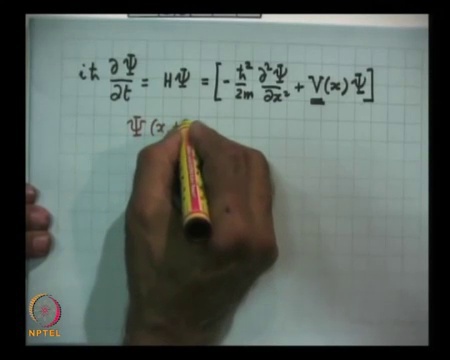 iħ ∂Ψ/∂t = HΨ = [-ħ²/2m ∂²Ψ/∂x² + V(x)Ψ]
Ψ(x,
NPTEL